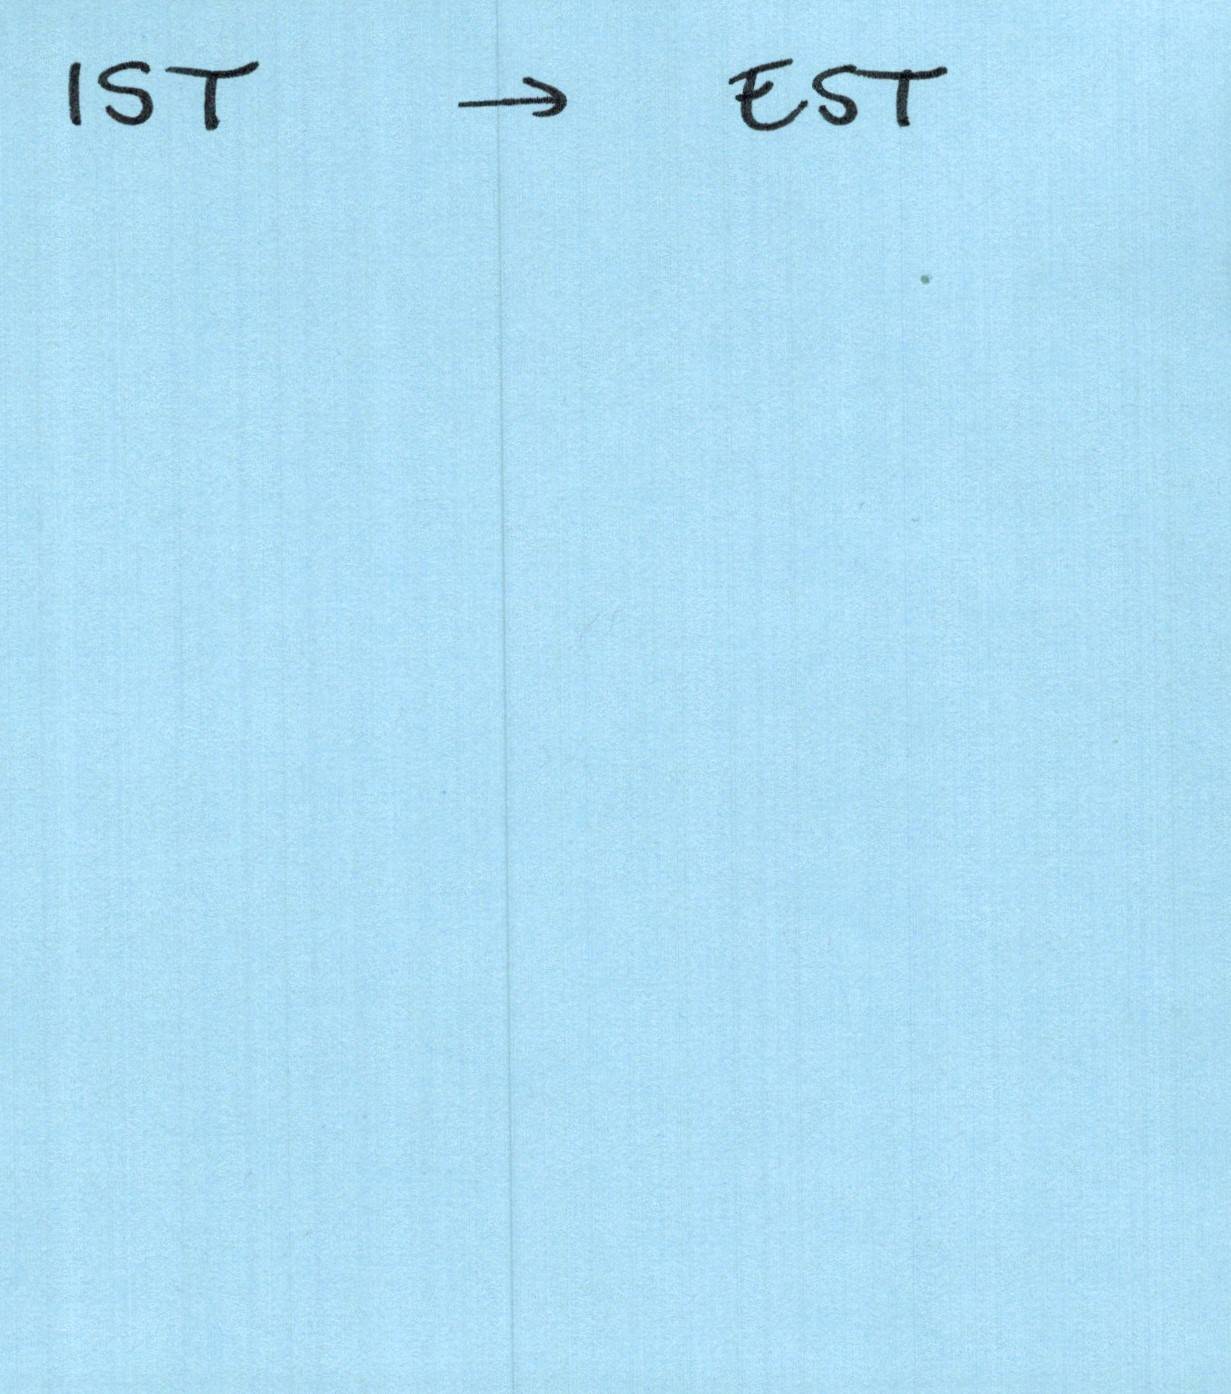 IST → EST